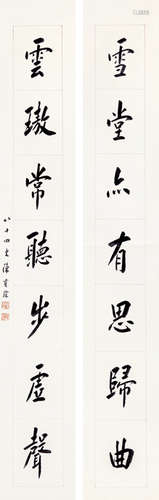 雪堂亦有思歸曲
雲璈常聽步虛聲
八十四叟陳寶琛